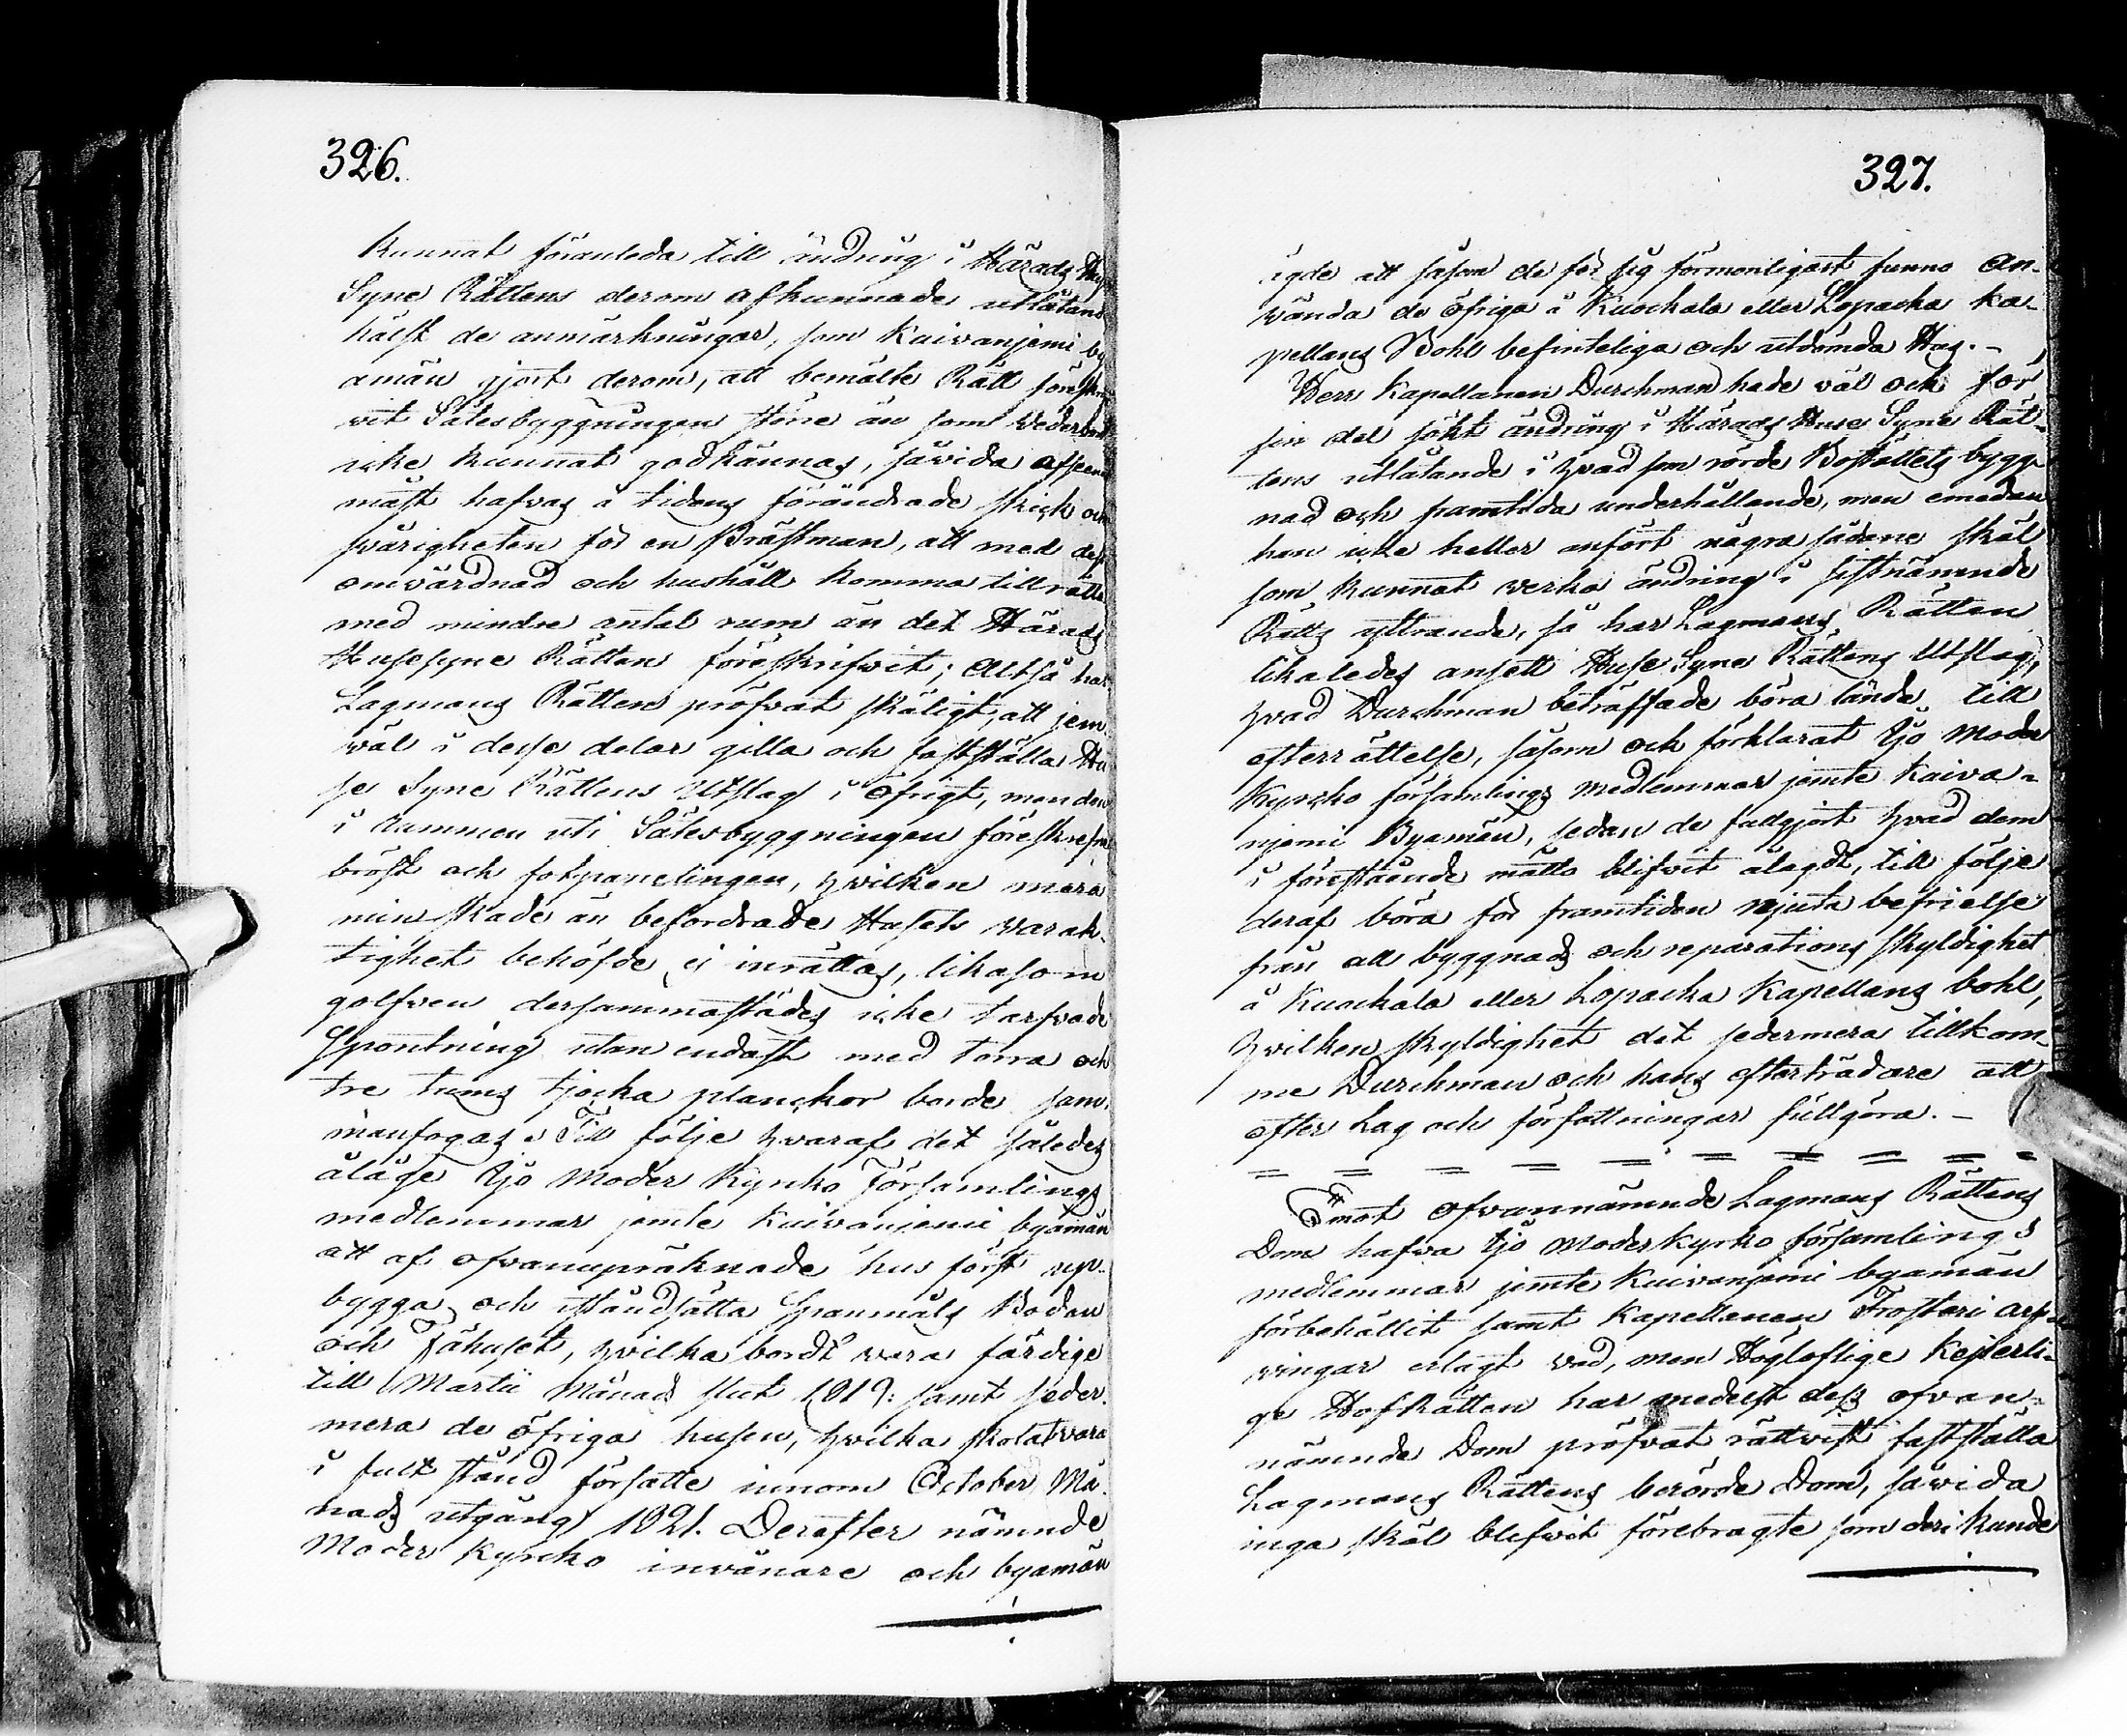 326.
Kunnat föranleda till ändring i Härads Huse
Syne Rättens derom afkunnade utlåtand
hälst de anmärkningar, som Kuivanjemi by
amän gjort derom, att bemälte Rätt föreskri
vit Sätesbyggningen större än som Vederbort
icke kunnat godkännas, såvida afseende
måst hafvas å tidens förändrade skick och
svårigheten för en Prästman, att med dess
omvårdnad och hushåll komma tillrätta
med mindre antal rum än det Härads
Husesyne Rätten föreskrifvit; Altså har
Lagmans Rätten pröfvat skäligt, att jem
wäl i desse delar gilla och fastställa Hu
se Syne Rättens Utslag i öfrigt, men den
i kammen uti Sätesbyggningen föreskrefne
bröst och fotpanelingen, hvilken mera
minskade än befordrade Husets varak-
tighet behöfde ej inrättas, likasom
golfven dersammastädes icke tarfvade
Spontning utan endast med torra och
tre tums tjocka planckor borde sam-
manfogas. Till följe hvaraf det således
ålåge Ijo Moder Kyrko Församlings
medlemmar jemte Kuivanjemi byamän
att af ofvanupräknade hus först up-
bygga och iståndsätta Spanmåls Bodan
och Fähuset, hvilka bordt vara färdige
till Martii Månads slut 1819: samt seder-
mera de öfriga husen, hvilka skola vara
i fult stånd försatte innom October Må-
nads utgång 1821. Derefter nämnde
Moder Kyrcko invånare och byamän
327.
ägde att såsom de för sig förmonligast funno an-
vända de öfriga å Kuockala eller Lopacka ka-
pellans Bohl befinteliga och utdömda Hus. -
Herr Kapellanen Durchman hade väl ock för
sin del sökt ändring i Härads Huse Syne Rät-
tens utlåtande i hvad som rörde Boställets bygg-
nad och framtida underhållande, men emedan
han icke heller anfört några sådane skäl
som kunnat verka ändring i sistnämnde
Rätts yttrande, så har Lagmans Rätten
likaledes ansett Huse Syne Rättens Utslag,
hvad Durchman beträffade böra lände till
efterrättelse, såsom och förklarat Ijo Moder
Kyrcko församlings medlemmar jemte Kuiva-
njemi Byamän, sedan de fullgjort hvad dem
i förestående måtto blifvit ålagdt, till följe
deraf böra för framtiden njuta befrielse
från all byggnads och reparations skyldighet
å Kuockala eller Lopacka Kapellans bohl,
hvilken skyldighet det sedermera tillkom-
me Durchman och hans efterträdare att
efter Lag och författningar fullgöra. -
Emot ofvannämnde Lagmans Rättens
Dom hafva Ijo Moderkyrko församlings
medlemmar jemte Kuivanjemi byamän
förbehållit samt Kapellanen Frosteri arf-
vingar erlagt vad, men Högloflige Kejserli-
ge Hofrätten har medelst dess ofvan-
nämnde Dom pröfvat rättvist fastställa
Lagmans Rättens berörde Dom, såvida
inga skäl blifvit förebragte som deri kunde